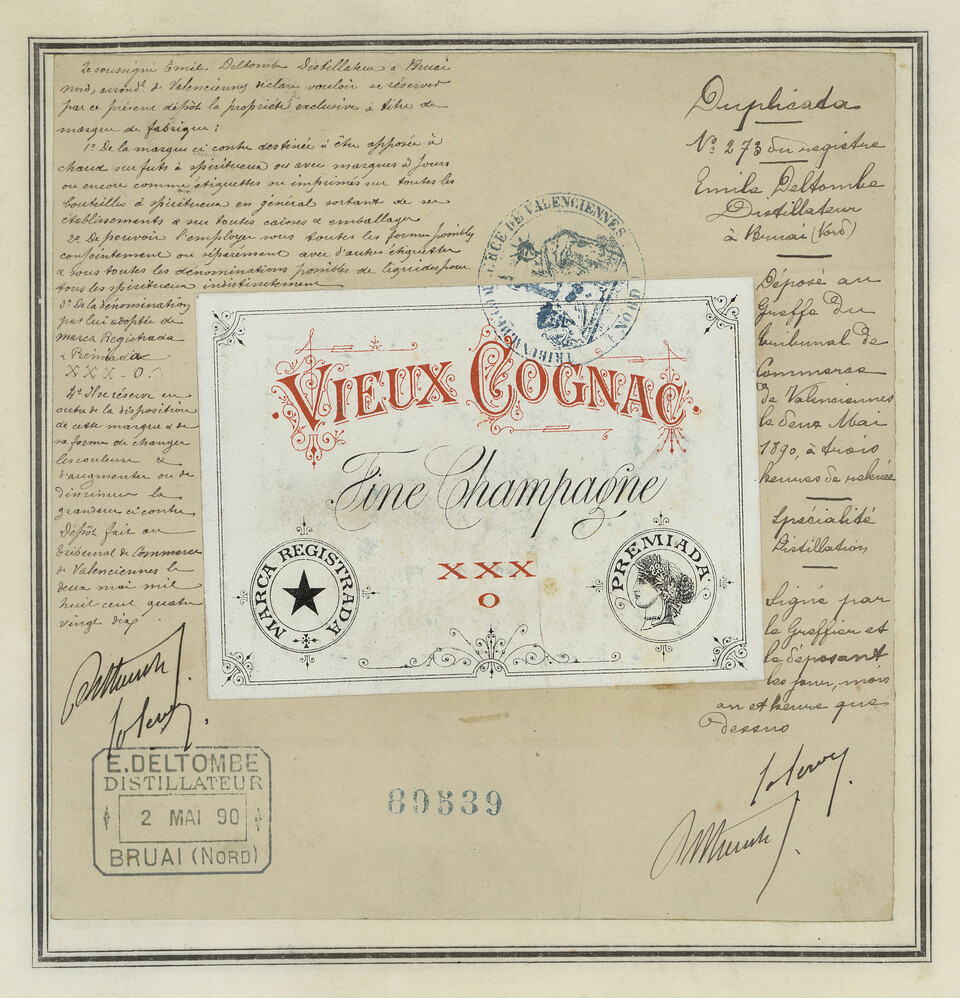 Le soussigné Emile Deltombe Distillateur à Bruai
Nord, arrondt. de Valenciennes déclare vouloir se réserver
par ce présent dépôt la propriété exclusive à titre de
marque de fabrique :
1º De la marque ci contre destinée à être apposée à
chaud sur futs à spiritueux ou avec marques à jours
ou encore comme étiquettes ou imprimés sur toutes les
bouteilles à spiritueux en général sortant de ses
établissements & sur toutes caisses & emballages
2º De pouvoir l'employer sous toutes les formes possibles
conjointement ou séparément avec d'autres étiquettes
& sous toutes les dénominations possibles de liquides pour
tous les spiritueux indistinctement
3º De la dénomination
par lui adoptée de
Marca Registrada
& Premiada
XXX-O.
4º Il se réserve en
outre de la disposition
de cette marque & de
sa forme de changer
les couleurs &
d'augmenter ou de
diminuer la
grandeur ci contre
Dépôt fait au
tribunal de Commerce
de Valenciennes le
deux mai mil
huit cent quatre
vingt dix
E. DELTOMBE
DISTILLATEUR
2 MAI 90
BRUAI (NORD)
TRIBUNAL DE COMMERCE DE VALENCIENNES
(NORD)
VIEUX COGNAC
Fine Champagne
XXX
O
MARCA REGISTRADA
PREMIADA
89539
Duplicata
Nº 273 du registre
Emile Deltombe
Distillateur
à Bruai (Nord)
Déposé au
Greffe du
tribunal de
Commerce
de Valenciennes
le deux Mai
1890, à trois
heures de relevée
Spécialité
Distillation
Signé par
le Greffier et
le déposant
les jour, mois
an et heure que
dessus